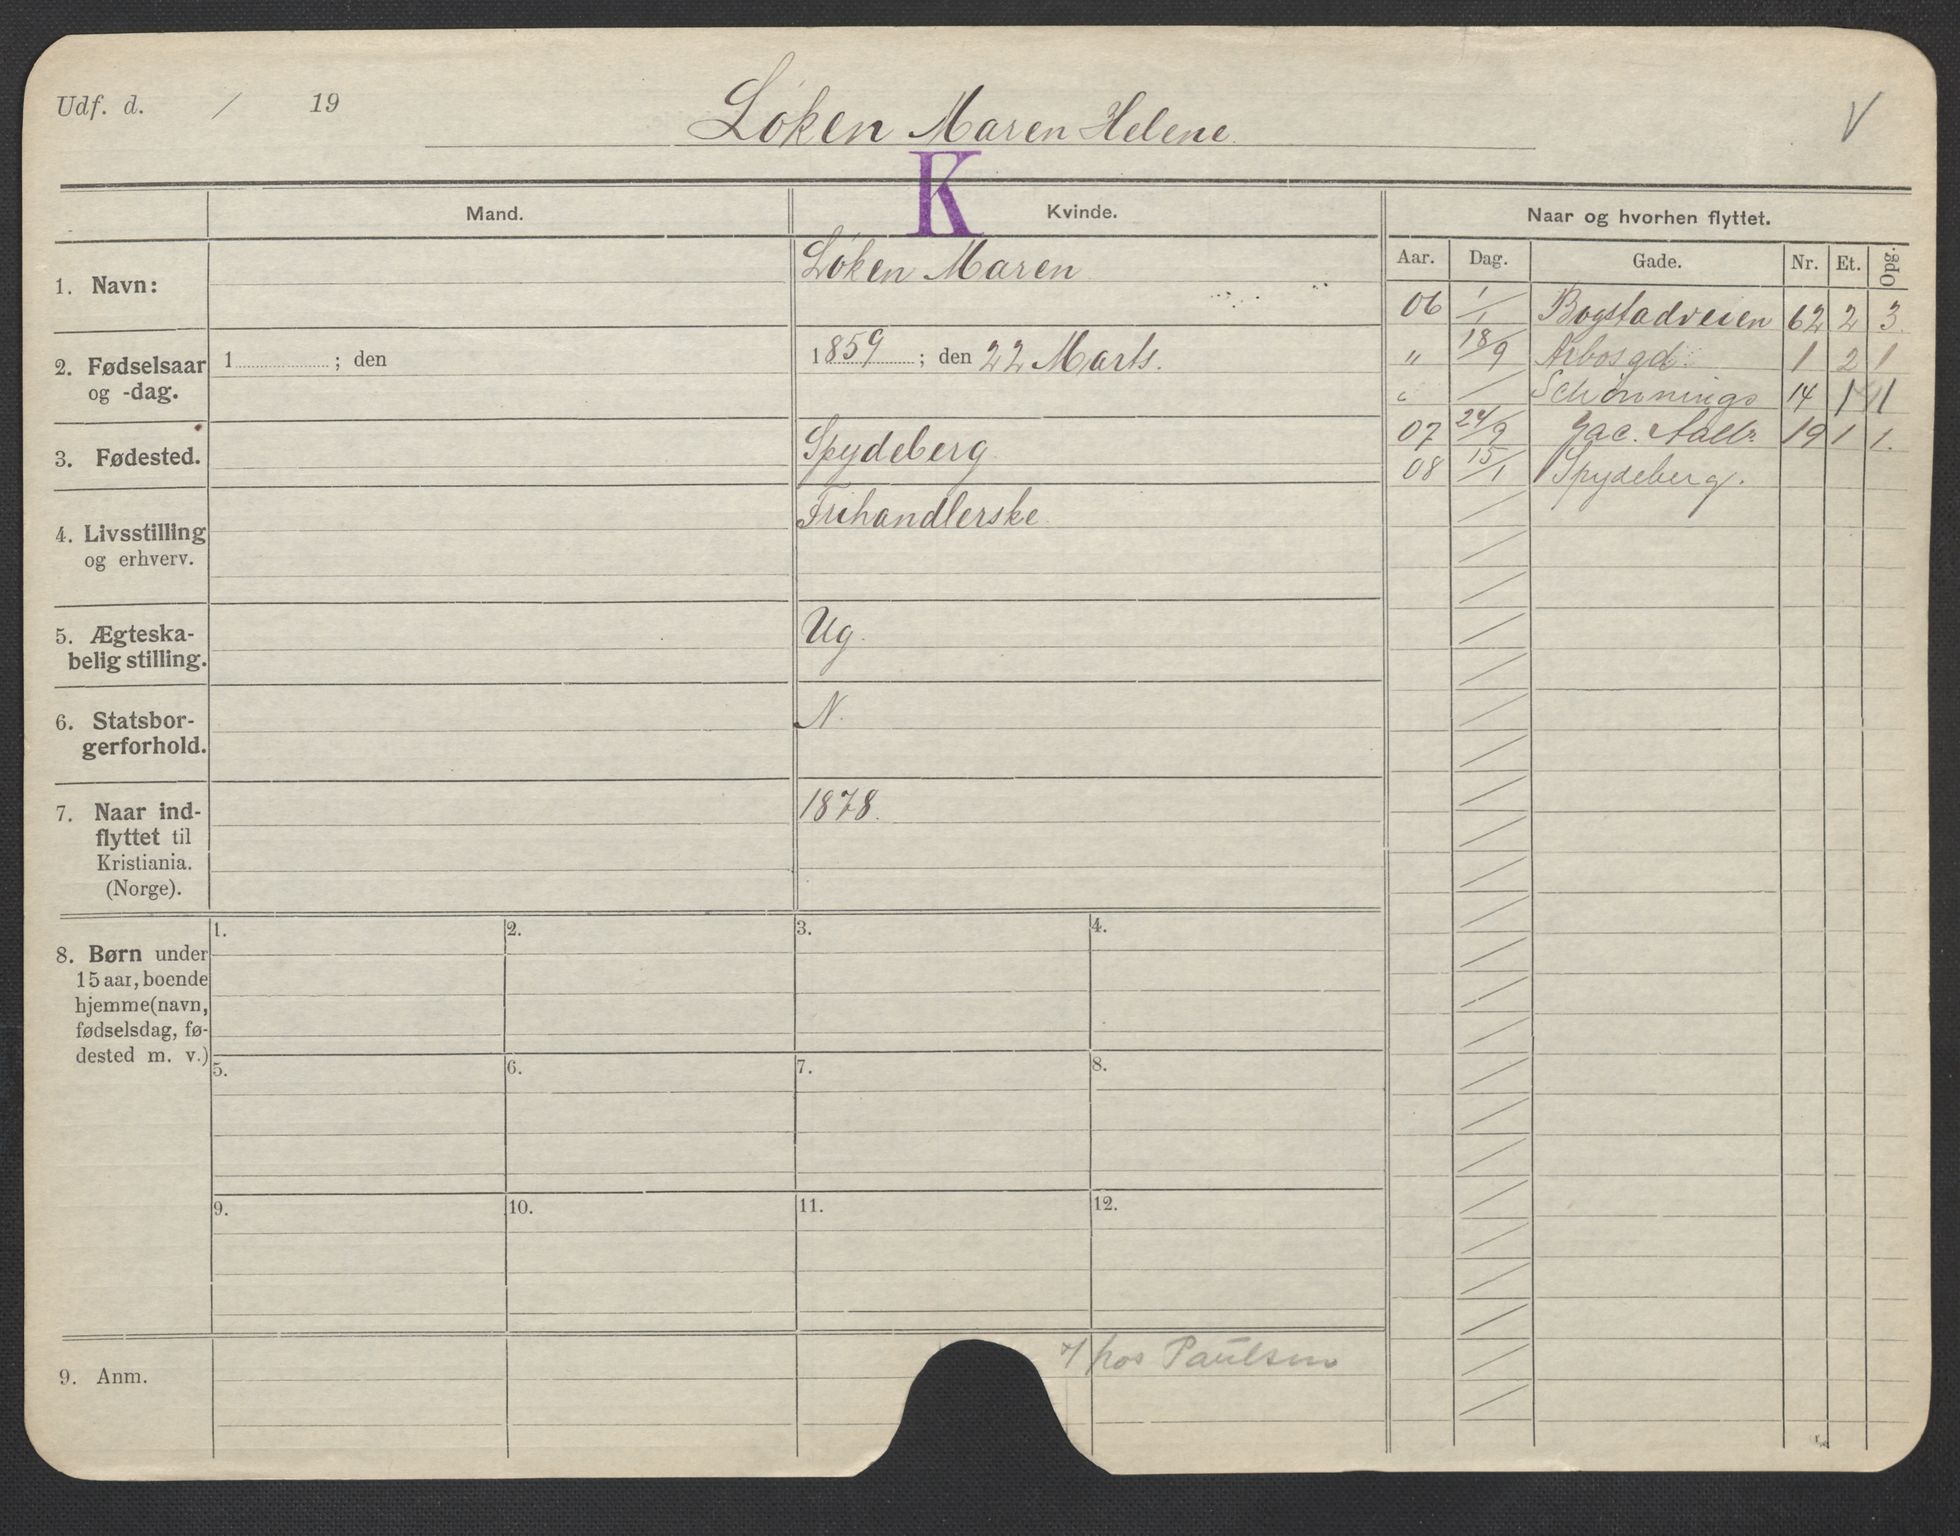 Udf. d. / 19
Løken Maren Helene.
V
K
Mand.
Kvinde.
Naar og hvorhen flyttet.
Aar. Dag. Gade. Nr. Et. Opg.
1. Navn:
Løken Maren
2. Fødselsaar
og -dag.
1 ; den
1859 ; den 22 Marts.
3. Fødested.
Spydeberg
4. Livsstilling
og erhverv.
Frihandlerske
5. Ægteska-
belig stilling.
Ug.
6. Statsbor-
gerforhold.
N.
7. Naar ind-
flyttet til
Kristiania.
(Norge).
1878.
06 1/1 Bogstadveien 62 2 3.
" 18/9 Arbosgd. 1 2 1
" / Schønnings 14 1 1
07 24/9 Jac. Aalls 19 1 1.
08 15/1 Spydeberg.
8. Børn under
15 aar, boende
hjemme (navn,
fødselsdag, fø-
dested m. v.)
1. 2. 3. 4.
5. 6. 7. 8.
9. 10. 11. 12.
9. Anm.
hos Paulsen